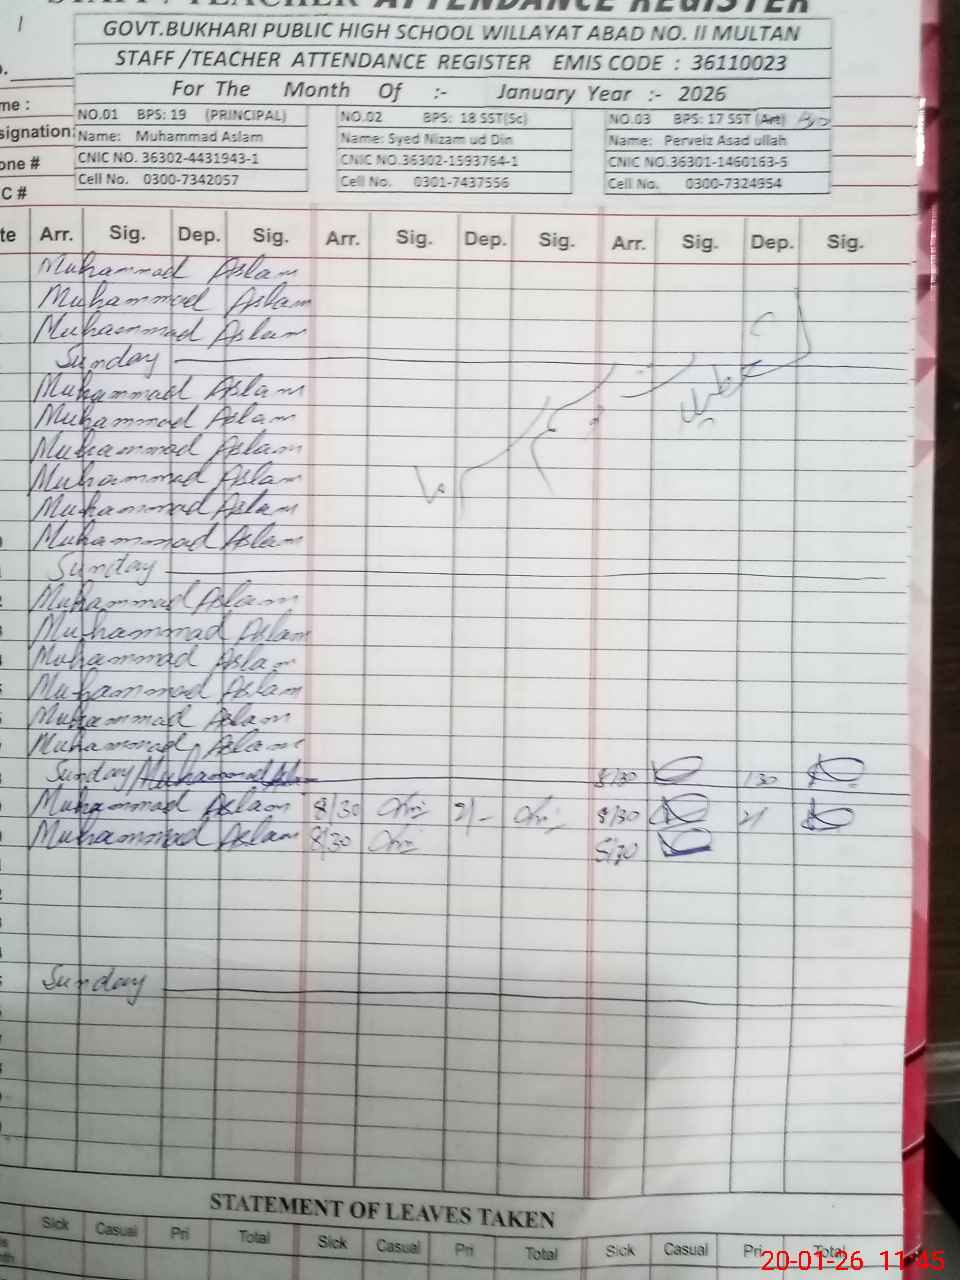 STAFF / TEACHER ATTENDANCE REGISTER
GOVT.BUKHARI PUBLIC HIGH SCHOOL WILLAYAT ABAD NO. II MULTAN
STAFF /TEACHER ATTENDANCE REGISTER EMIS CODE : 36110023
For The Month Of :- January Year :- 2026
NO.01 BPS: 19 (PRINCIPAL) NO.02 BPS: 18 SST(Sc) NO.03 BPS: 17 SST (Art)
Name: Muhammad Aslam Name: Syed Nizam ud Din Name: Perveiz Asad ullah
CNIC NO. 36302-4431943-1 CNIC NO.36302-1593764-1 CNIC NO.36301-1460163-5
Cell No. 0300-7342057 Cell No. 0301-7437556 Cell No. 0300-7324954
me :
signation:
one #
C #
te Arr. Sig. Dep. Sig. Arr. Sig. Dep. Sig. Arr. Sig. Dep. Sig.
Muhammad Aslam
Muhammad Aslam
Muhammad Aslam
Sunday
Muhammad Aslam
Muhammad Aslam
Muhammad Aslam
Muhammad Aslam
Muhammad Aslam
Muhammad Aslam
Sunday
Muhammad Aslam
Muhammad Aslam
Muhammad Aslam
Muhammad Aslam
Muhammad Aslam
Muhammad Aslam
Sunday/Muhammad Aslam 8/30 1/30
Muhammad Aslam 8/30 2/- 8/30 2/
Muhammad Aslam 8/30
Sunday
STATEMENT OF LEAVES TAKEN
Sick Casual Pri Total Sick Casual Pri Total Sick Casual Pri Total
20-01-26 11:45